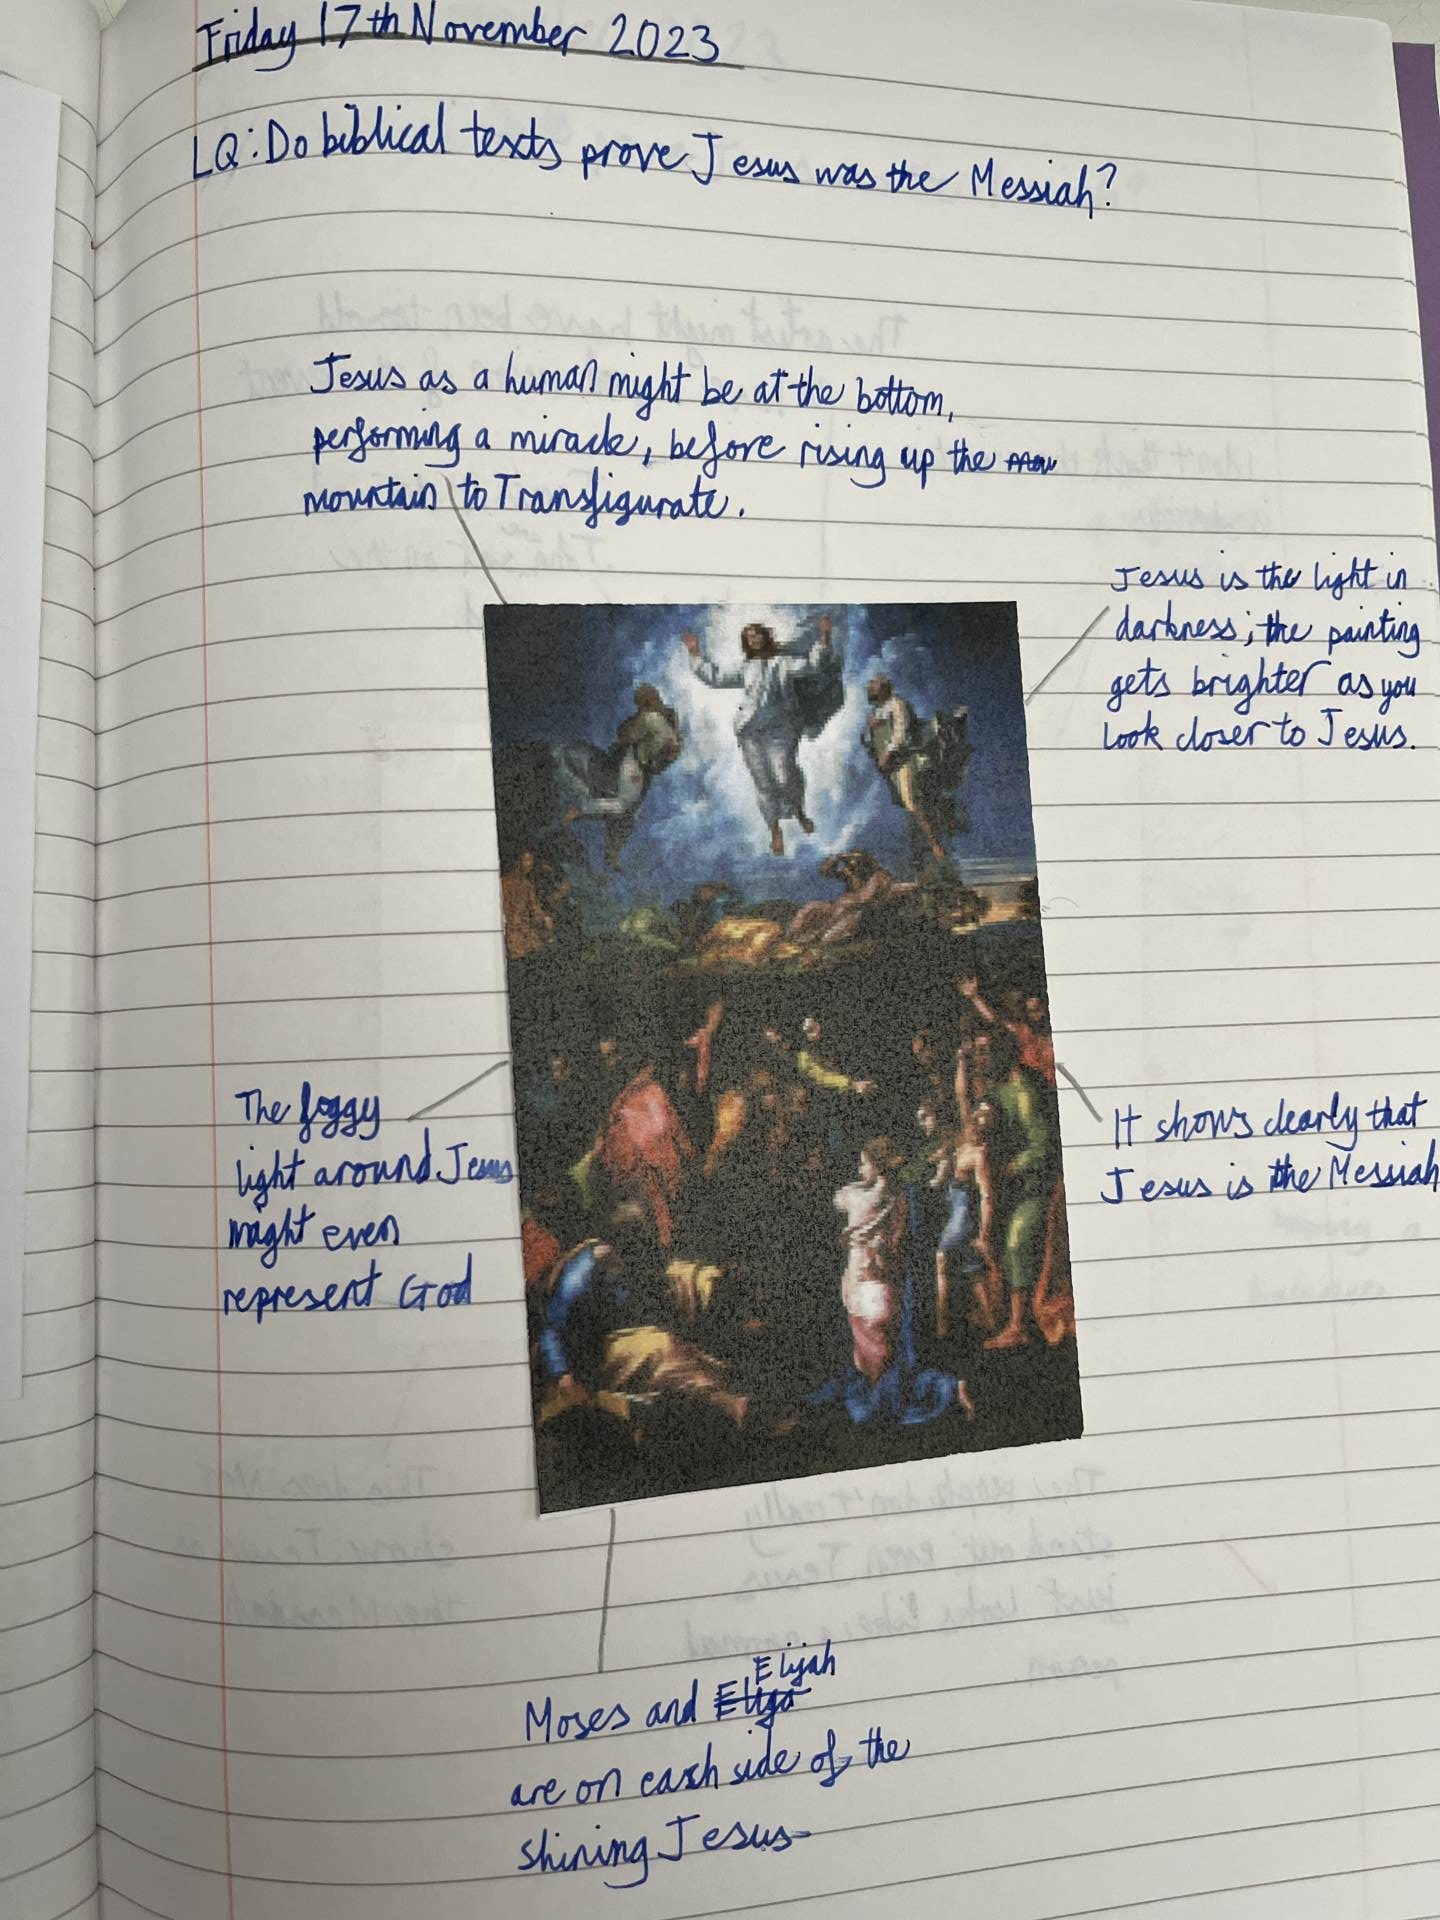 Friday 17th November 2023
LQ: Do biblical texts prove Jesus was the Messiah?
Jesus as a human might be at the bottom,
performing a miracle, before rising up the
mountain to Transfigurate.
Jesus is the light in
darkness; the painting
gets brighter as you
look closer to Jesus.
The foggy
light around Jesus
might even
represent God
It shows clearly that
Jesus is the Messiah
Moses and Elijah
are on each side of the
shining Jesus